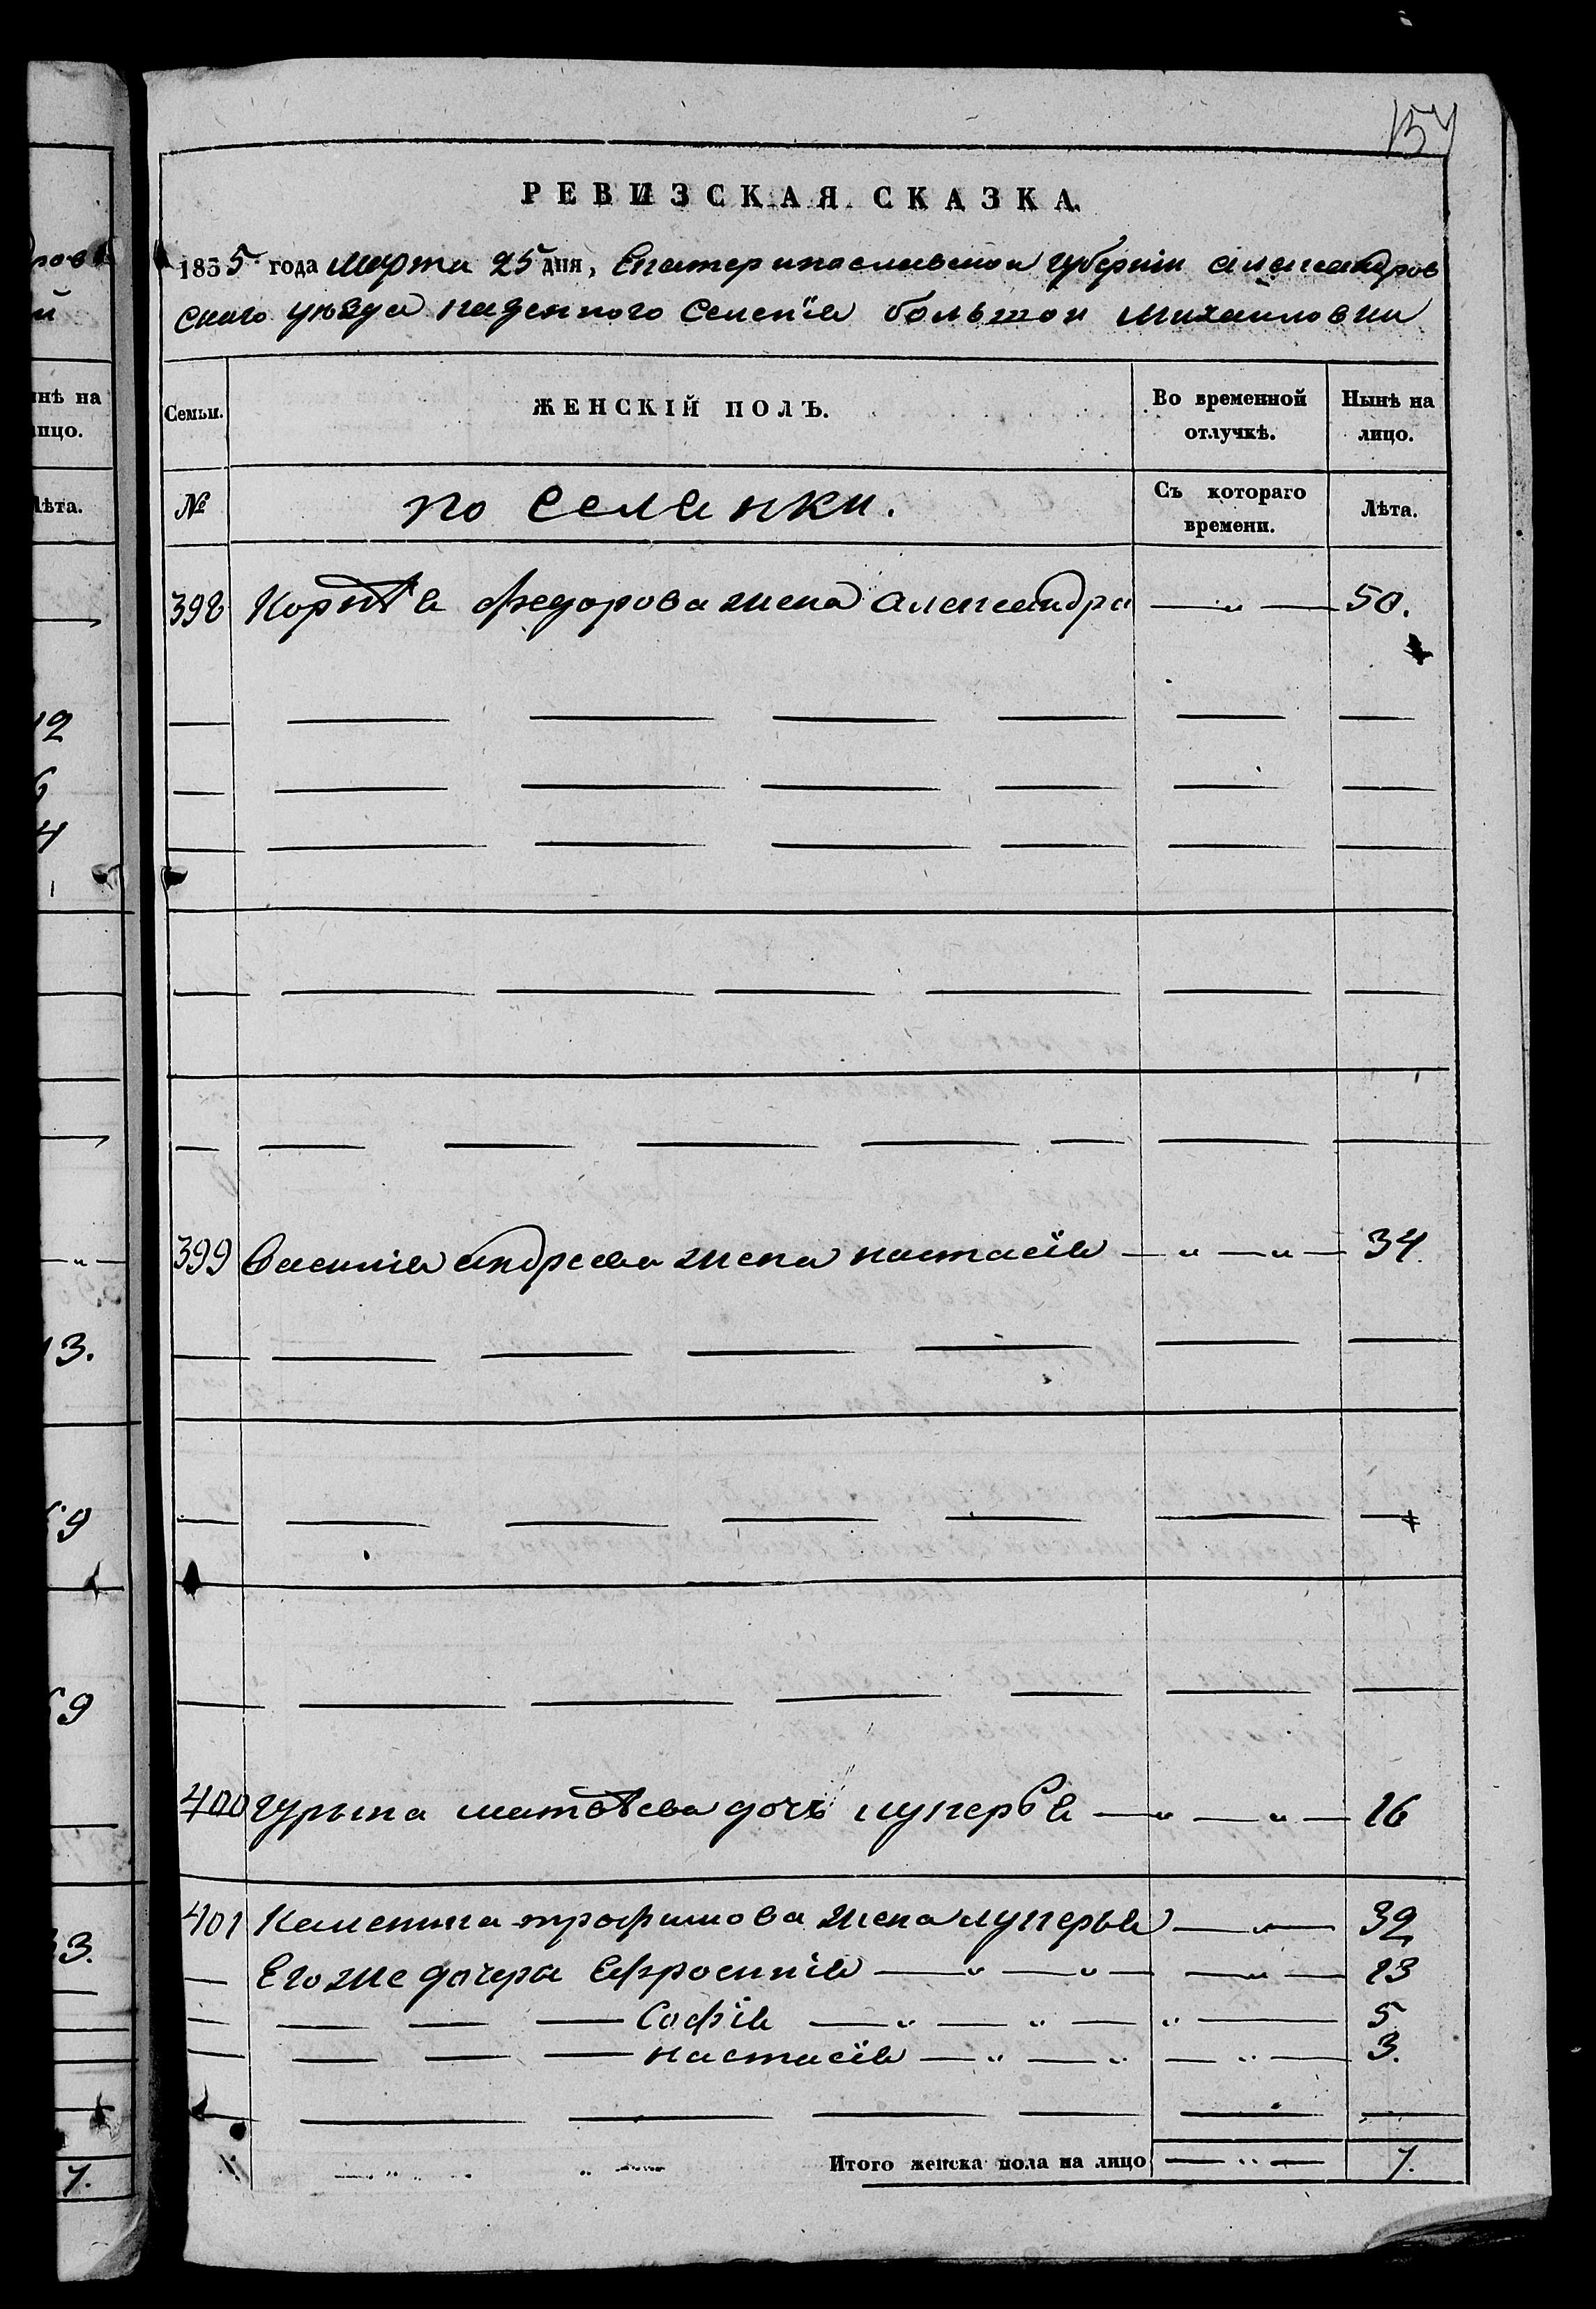 157
РЕВИЗСКАЯ СКАЗКА.
1835 года марта 25 дня, Екатеринославской губерніи александров
скаго уѣзда казенного Селенія большой михайловки
Семьи.
ЖЕНСКІЙ ПОЛЪ.
Во временной отлучкѣ.
Нынѣ на лицо.
№
по селянки.
Съ котораго времени.
Лѣта.
398 Корнѣя федорова жена александра — „ — 50.
399 Василія андреева жена настасія — „ — „ — 34.
400 гурына матвѣева дочь лукерья — „ — „ — 16
401 Каленика трофимова жена лукерья — „ — 32
Его же дочери Ефросинія — „ — „ — „ — 13
Софія — „ — „ — „ — 5
настасія — „ — „ — „ — 3.
Итого женска пола на лицо — „ — 7.
ровъ
й
нѣ на
ицо.
Лѣта.
12
6
4
13.
59
59
33.
7.